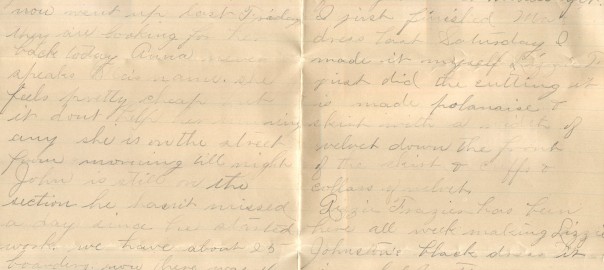 now went up last Friday
they are looking for her
back today Anna never
speaks his name she
feels pretty cheap but
it dont help
any she is on the street
from morning till night
John is still on the
section he hasnt missed
a day since he started
work we have about 25
boarding now there was
I just finished Ma
dress last Saturday I
made it myself Lizzie F
just did the cutting it
is made polanaise &
skirt with of
velvet down the front
of the skirt & cuffs &
collars of velvet
Lizzie Frazier has been
here all week making Lizzie
Johnston's black dress it